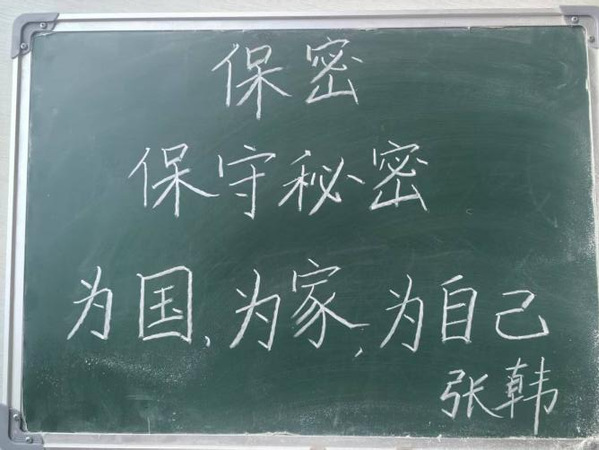 保密
保守秘密
为国,为家,为自己
张韩